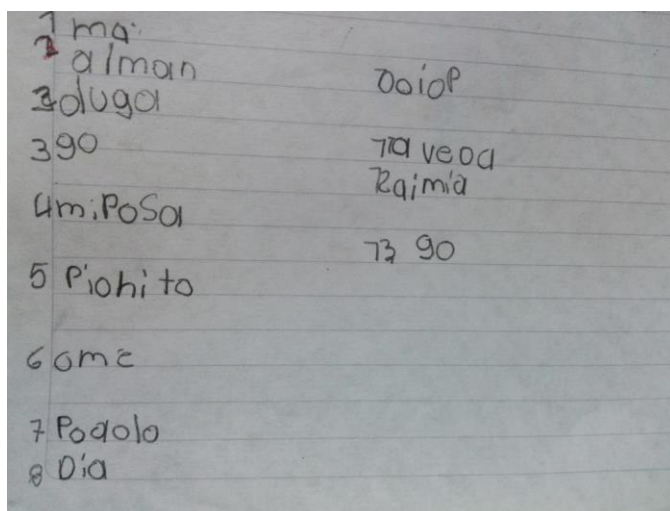 1 ma.
2 alman
3 duga
3 90
4 miposa
5 Piohito
6 ome
7 Podolo
8 Dia
Ooiop
11a veoa
Raimia
13 90